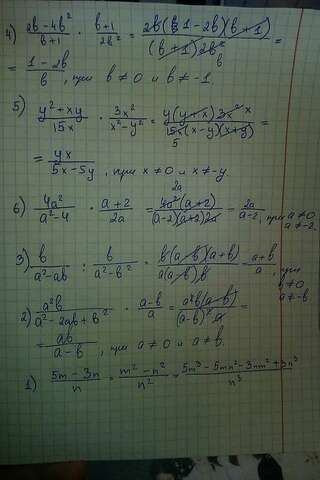 4) (2b - 4b²)/(b+1) · (b+1)/(2b²) = (2b(1-2b)(b+1))/((b+1)2b²) =
= (1-2b)/b, при b ≠ 0 и b ≠ -1.
5) (y²+xy)/(15x) · (3x²)/(x²-y²) = (y(y+x)3x² x)/(15x(x-y)(x+y)) =
5
= (yx)/(5x-5y), при x ≠ 0 и x ≠ -y.
2a
6) (4a²)/(a²-4) · (a+2)/(2a) = (4a²(a+2))/((a-2)(a+2)2a) = (2a)/(a-2), при a ≠ 0
a ≠ -2.
3) b/(a²-ab) : b/(a²-b²) = (b(a-b)(a+b))/(a(a-b)b) = (a+b)/a, при
b ≠ 0
a ≠ -b
2) (a²b)/(a²-2ab+b²) · (a-b)/a = (a²b(a-b))/((a-b)² a) =
= (ab)/(a-b), при a ≠ 0 и a ≠ b.
1) (5m-3n)/n · (m²-n²)/n² = (5m³-5mn²-3nm²+3n³)/n³